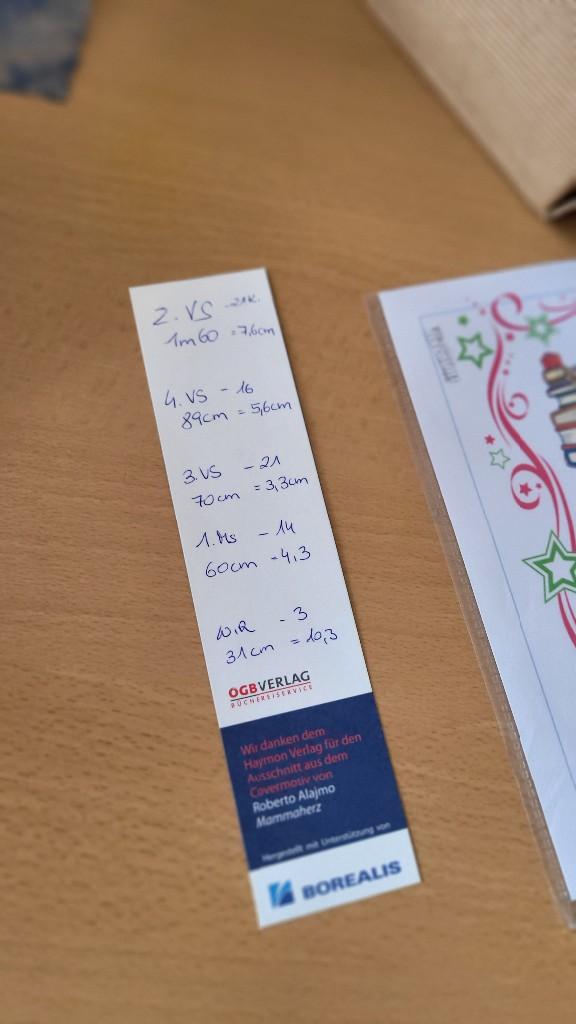 2. VS - 21K.
1m60 = 7,6cm
4. VS - 16
89cm = 5,6cm
3. VS - 21
70cm = 3,3cm
1. Ms - 14
60cm = 4,3
WiR - 3
31cm = 10,3
OGBVERLAG
BÜCHEREISERVICE
Wir danken dem
Haymon Verlag für den
Ausschnitt aus dem
Covermotiv von
Roberto Alajmo
Mammaherz
Hergestellt mit Unterstützung von
BOREALIS